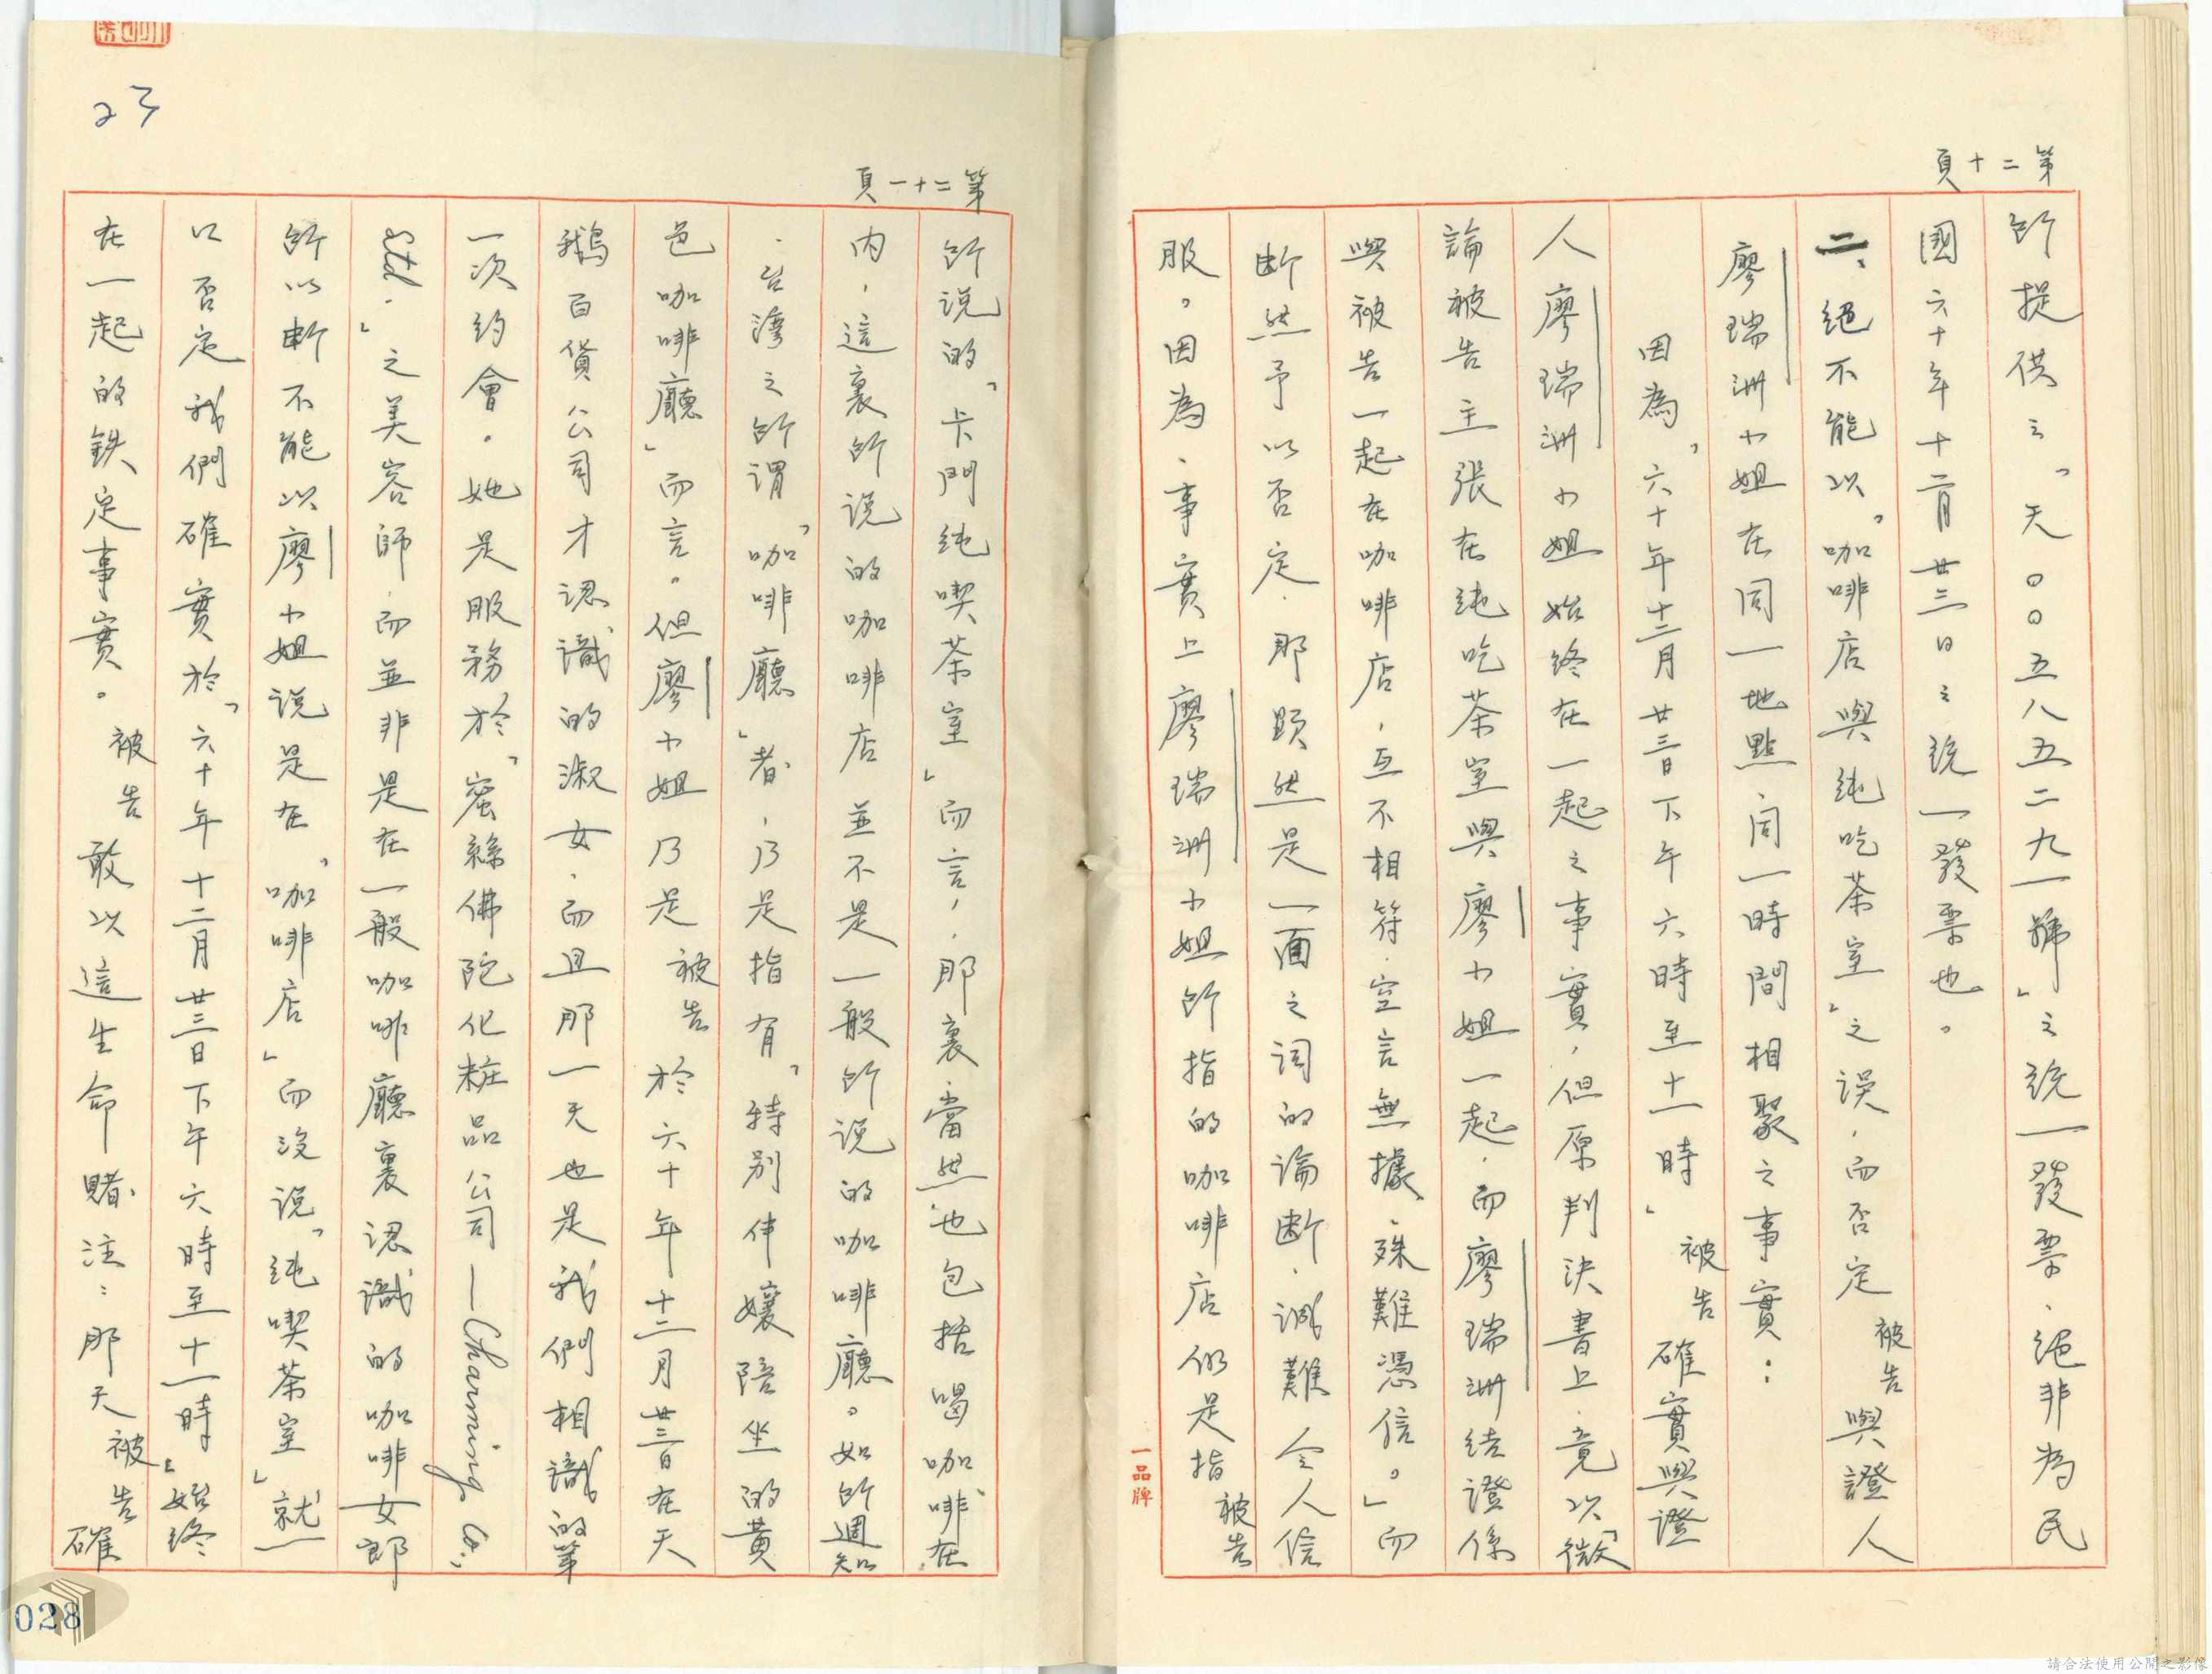 第二十頁
所提供之「天〇〇五八五二九一號」之統一發票、絕非為民
國六十年十二月廿三日之統一發票也。
二、絕不能以「咖啡店與純吃茶室」之誤，而否定被告與證人
廖瑞洲小姐在同一地點、同一時間相聚之事實：
因為「六十年十二月廿三日下午六時至十一時」被告確實與證
人廖瑞洲小姐始終在一起之事實，但原判決書上，竟以「微
論被告主張在純吃茶室與廖小姐一起，而廖瑞洲結證係
與被告一起在咖啡店，互不相符，空言無據，殊難憑信。」而
断然予以否定，那顯然是一面之詞的論断，誠難令人信
服。因為，事實上廖瑞洲小姐所指的咖啡店仍是指被告
一品牌
第二十一頁
所說的「卡門純喫茶室」而言，那裏，當然也包括喝咖啡在
內，這裏所說的咖啡店並不是一般所說的咖啡廳。如所週知
，台灣之所謂「咖啡廳」者，乃是指有「特別伴孃陪坐的黃
色咖啡廳」而言。但廖小姐乃是被告於六十年十二月廿三日在天
鵝百貨公司才認識的淑女，而且那一天也是我們相識的第
一次約會。她是服務於「蜜絲佛陀化粧品公司—Charming Co.,
Ltd.」之美容師，而並非是在一般咖啡廳裏認識的咖啡女郎
所以断不能以廖小姐說是在「咖啡店」而沒說「純喫茶室」就
以否定我們確實於「六十年十二月廿三日下午六時至十一時」始終
在一起的鉄定事實。被告敢以這生命賭注：那天被告確
23
028
請合法使用公開之影像